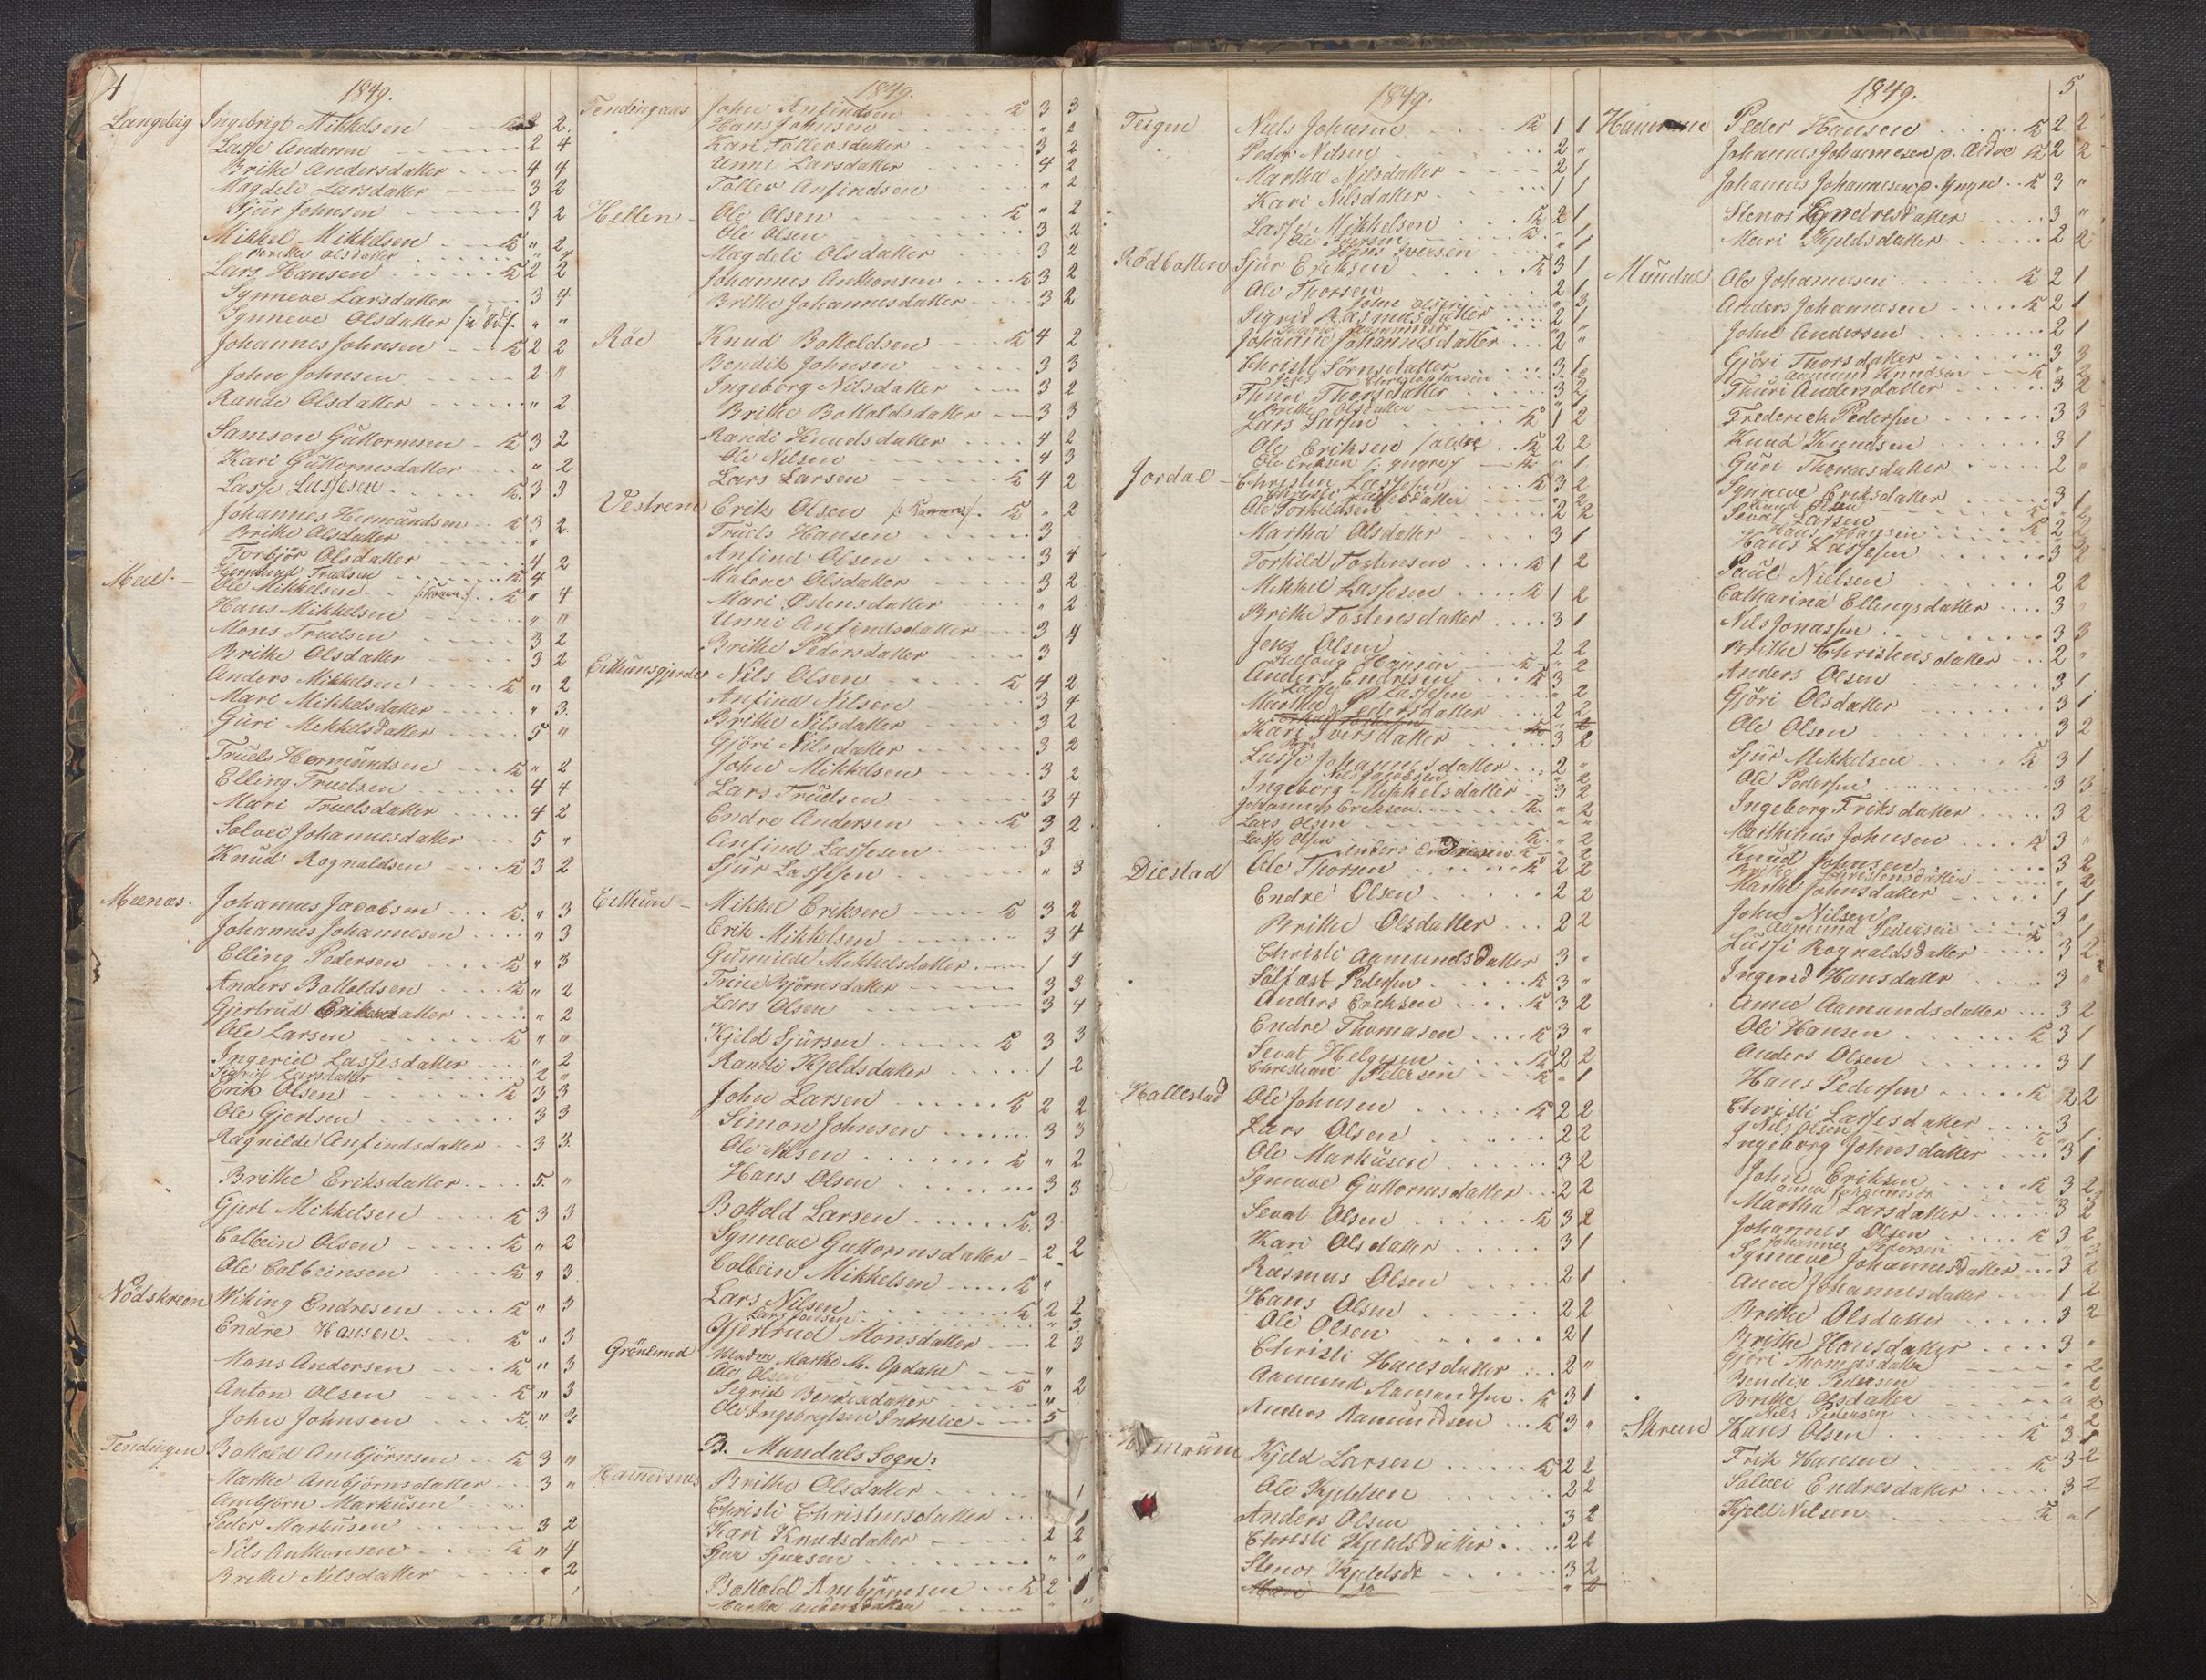 4
1849.
Langdeig Ingebrigt Mikkelsen 2.
Lasse Andersen 2 4
Brithe Andersdatter 4 4
Magdeli Larsdatter 3 2
Sjur Johnsen 3 2
Mikkel Mikkelsen " 2
Olsdatter
Lars Hansen 2 2
Synneve Larsdatter 3 4
Synneve Olsdatter " "
Johannes Johnsen 2 2
John Johnsen 2 "
Randi Olsdatter " 2
Samson Guttormsen 3 2
Kari Guttormsdatter " 2
Lasse Lassesen 3 3
Johannes Hermundsen 3 2
Brithe Olsdatter "
Torbjör Olsdatter 4 2
Hermund Truelsen 4
Meel Ole Mikkelsen " 4
Hans Mikkelsen " "
Mons Truelsen 3 2
Brithe Olsdatter 3 2
Anders Mikkelsen " 2
Mari Mikkelsdatter " 3.
Guri Mikkelsdatter 5 "
Truels Hermundsen " 2
Elling Truelsen 4 4
Mari Truelsdatter 4 2
Solvei Johannesdatter 5 "
Knud Rognaldsen 3 2
Meenæs. Johannes Jacobsen " 3
Johannes Johannesen " 3
Elling Pedersen " 3
Anders Bottoldsen " 2
Gjertrud Eriksdatter " 2
Ole Larsen " "
Ingerid Lassesdatter " 2
Sigrid Larsdatter 2 "
Erik Olsen 3 3
Ole Gjertsen 3 3
Ragnilde Anfindsdatter 3 3
Brithe Eriksdatter 5 "
Gjert Mikkelsen 3 3
Colbein Olsen " 2
Ole Colbeinsen " 3
Nödskreen Wiking Endresen " 3
Endre Hansen " 3
Mons Andersen " 3
Anton Olsen " 3
John Johnsen " 3
Tendingen Bottold Ambjörnsen 3 "
Marthe Ambjörnsdatter 3 "
Ambjörn Markusen
Peder Markusen 3 2
Nils Anthonsen " 4
Brithe Nilsdatter " 2
1849.
John Anfindsen 3 3
Hans Johnsen " 2
Kari Tollevsdatter 3 2
Unni Larsdatter 4 2
Tollev Anfindsen " 2
Hellen Ole Olsen " 2
Ole Olsen 3 2
Magdeli Olsdatter 3 2
Johannes Anthonsen 3 2
Brithe Johannesdatter 3 2
Röe Knud Bottoldsen 4 2
Bendik Johnsen 3 3
Ingeborg Nilsdatter 3 2
Brithe Bottoldsdatter 3 3
Randi Knudsdatter 4 2
Ole Nilsen 4 3
Lars Larsen 4 2
Vestreim Erik Olsen " 2
Truels Hansen 3
Anfind Olsen 3 4
Malene Olsdatter 3 2
Mari Østensdatter " 2
Unni Anfindsdatter 3 4
Brithe Pedersdatter 3
Eithunsgjerde Nils Olsen 4 2
Anfind Nilsen 3 4
Brithe Nilsdatter 3 2
Gjöri Nilsdatter 3 2
John Mikkelsen 3 2
Lars Truelsen 3 4
Endre Andersen 3 2
Anfind Lassesen 3
Sjur Lassesen " 3
Eithun Mikkel Eriksen 3 2
Erik Mikkelsen 3 4
Gunnilde Mikkelsdatter 1 4
Trine Björnsdatter 3 3
Lars Olsen 3 4
Kjeld Sjursen 3 3
Randi Kjeldsdatter 1 2
John Larsen 2 2
Simon Johnsen 3 3
Ole Nilsen " 2
Hans Olsen 3 3
Bottold Larsen 3
Synneve Guttormsdatter 2 2
Colbein Mikkelsen "
Lars Nilsen 2 2
Gjertrud Monsdatter 2 3
Grönlund Madm Marthe M. Opdahl "
Ole Olsen " 2
Sigrid Bendixdatter "
Ole Ingebrigtsen 5
B. Mundals Sogn:
Hamersnes Brithe Olsdatter " 1
Christi Christensdatter 1
Kari Knudsdatter 2 2
Sjur Sjursen " "
Bottold Ambjörnsen 2 1
Marthe Andersdatter
1849.
Teigen Niels Johnsen 1 1
Peder Nilsen 2 "
Martha Nilsdatter 2 1
Kari Nilsdatter 1 1
Lasse Mikkelsen 2 1
Iversen " 1
Rödbotten Sjur Eriksen 3 1
Ole Thorsen 2 1
John Olsen " 3
Sigrid Rasmusdatter 2 1
Johanne Johannesdatter 2 "
Christi Sörensdatter 3 1
Thuri Thorsdatter 3 2
Brithe Olsdatter " 1
Lars Larsen 1 2
Ole Eriksen ældre 2 2
Ole Eriksen yngre " 1
Jordal Christen Lassesen 3 2
Christi Lassesdatter " 2
Ole Torkildsen 2 2
Martha Olsdatter 3 1
Torkild Tostensen 1 2
Mikkel Lassesen 1 2
Brithe Tostensdatter 3 1
Jens Olsen 2 2
Hansen " 2
Anders Endresen 3
Lasse Lassesen " 2
Martha Pedersdatter 2 2
Kari Iversdatter 3 2
Lussi Johannesdatter 2 "
Nils Jacobsen " 2
Ingeborg Mikkelsdatter 3 2
Johannes Eriksen " 2
Lars Olsen " "
Lasse Olsen " 2
Anders Endresen " 2
Diestad Ole Thorsen 2 2
Endre Olsen 2 2
Brithe Olsdatter 2 2
Christi Aamundsdatter 3 "
Solfæst Pedersen 3 "
Anders Eriksen 3 2
Endre Thomasen 3 "
Sevat Helgesen 2 2
Christian Petersen " 1
Hallestad Ole Johnsen 2 2
Lars Olsen 2 2
Ole Markusen 3 2
Synneve Guttormsdatter 2 2
Sevat Olsen 3 2
Kari Olsdatter 3 1
Rasmus Olsen 2 1
Hans Olsen 2 2
Ole Olsen 2 1
Christi Hansdatter 2 "
Aamund Aamundsen 3 1
Anders Aamundsen 3 "
Kjeld Larsen 2 2
Ole Kjeldsen 2 2
Anders Olsen 3 2
Christi Kjeldsdatter 2 2
Stenor Kjeldsdr 3 2
Mari do
1849. 5
Peder Hansen 2 2
Johannes Johannesen p. Ældre 2 2
Johannes Johannesen p. Yngre 3 "
Stenor Endresdatter 3 "
Mari Kjeldsdatter 2 2
Mundal Ole Johannesen 2 1
Anders Johannesen 2 1
John Andersen 2 1
Gjöri Thorsdatter 3 3
Aamund Knudsen " 2
Thuri Andersdatter 3 2
Frederick Pedersen 3 3
Knud Knudsen 3 1
Guri Thomasdatter 2 "
Synneve Eriksdatter 3 1
Bengt Olsen " 2
Sevat Larsen 2 2
Hans Hansen
Hans Lassesen 3 2
Paul Nielsen 2 2
Catharina Ellingsdatter 3 "
Nils Jonassen 3 3
Brithe Christensdatter 2 "
Anders Olsen 3 1
Gjöri Olsdatter 3 1
Ole Olsen 3 2
Sjur Mikkelsen 3 1
Ole Pedersen 3 3
Ingeborg Eriksdatter 3 2
Mathias Johnsen 3 "
Knud Johnsen 3 2
Brithe Christensdatter " 2
Marthe Johnsdatter 1 1
John Nilsen 3 "
Aamund Pedersen " 1
Lussi Rognaldsdatter 3 2
Ingerid Hansdatter 3 "
Anne Aamundsdatter 3 2
Ole Hansen 3 1
Anders Olsen 3 1
Hans Pedersen 2 2
Christi Lassesdatter 3
Nils Olsen " 1
Ingeborg Johnsdatter 3 1
John Eriksen 3 2
Anna Johannesdr
Martha Larsdatter 3 2
Johannes Olsen 3 2
Johannes Petersen " 3
Synneve Johannesdatter 3 2
Anne Johannesdatter 1 2
Brithe Olsdatter 3 2
Brithe Hansdatter 3 "
Gjöri Thomasdatter " 2
Bendix Pedersen " 2
Brithe Olsdatter " 2
Nils Pedersen " 2
Skreen Hans Olsen 3 1
Erik Hansen 3 2
Solvei Endresdatter 3 2
Kjeld Nilsen " 1